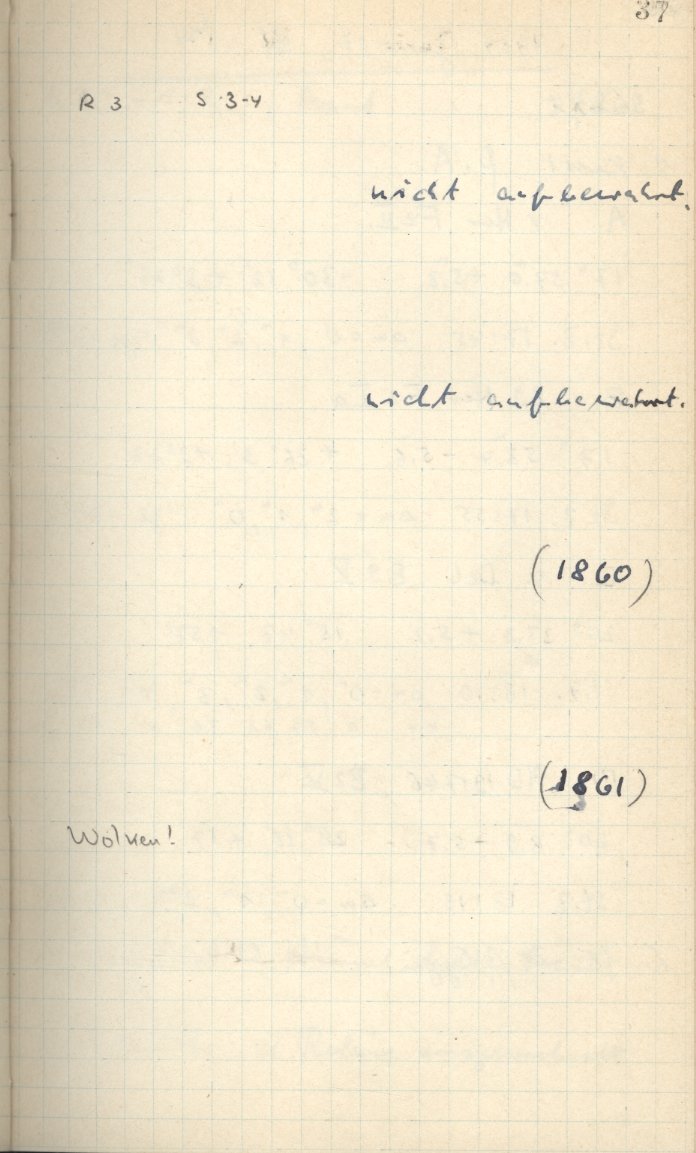 37
R 3 S 3-4
nicht aufbewahrt.
nicht aufbewahrt.
(1860)
(1861)
Wolken!